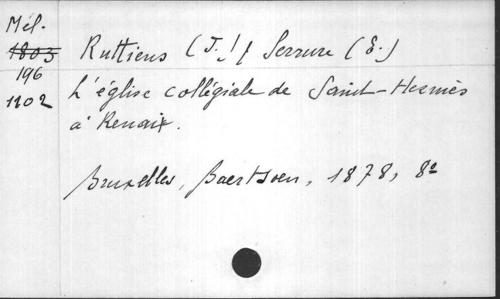 Mél.
1803
196
1102
Ruttiens (J.) & Serrure (E.)
L'église collégiale de Saint-Hermès
à Renaix.
Bruxelles, Baertsoen, 1878, 8°